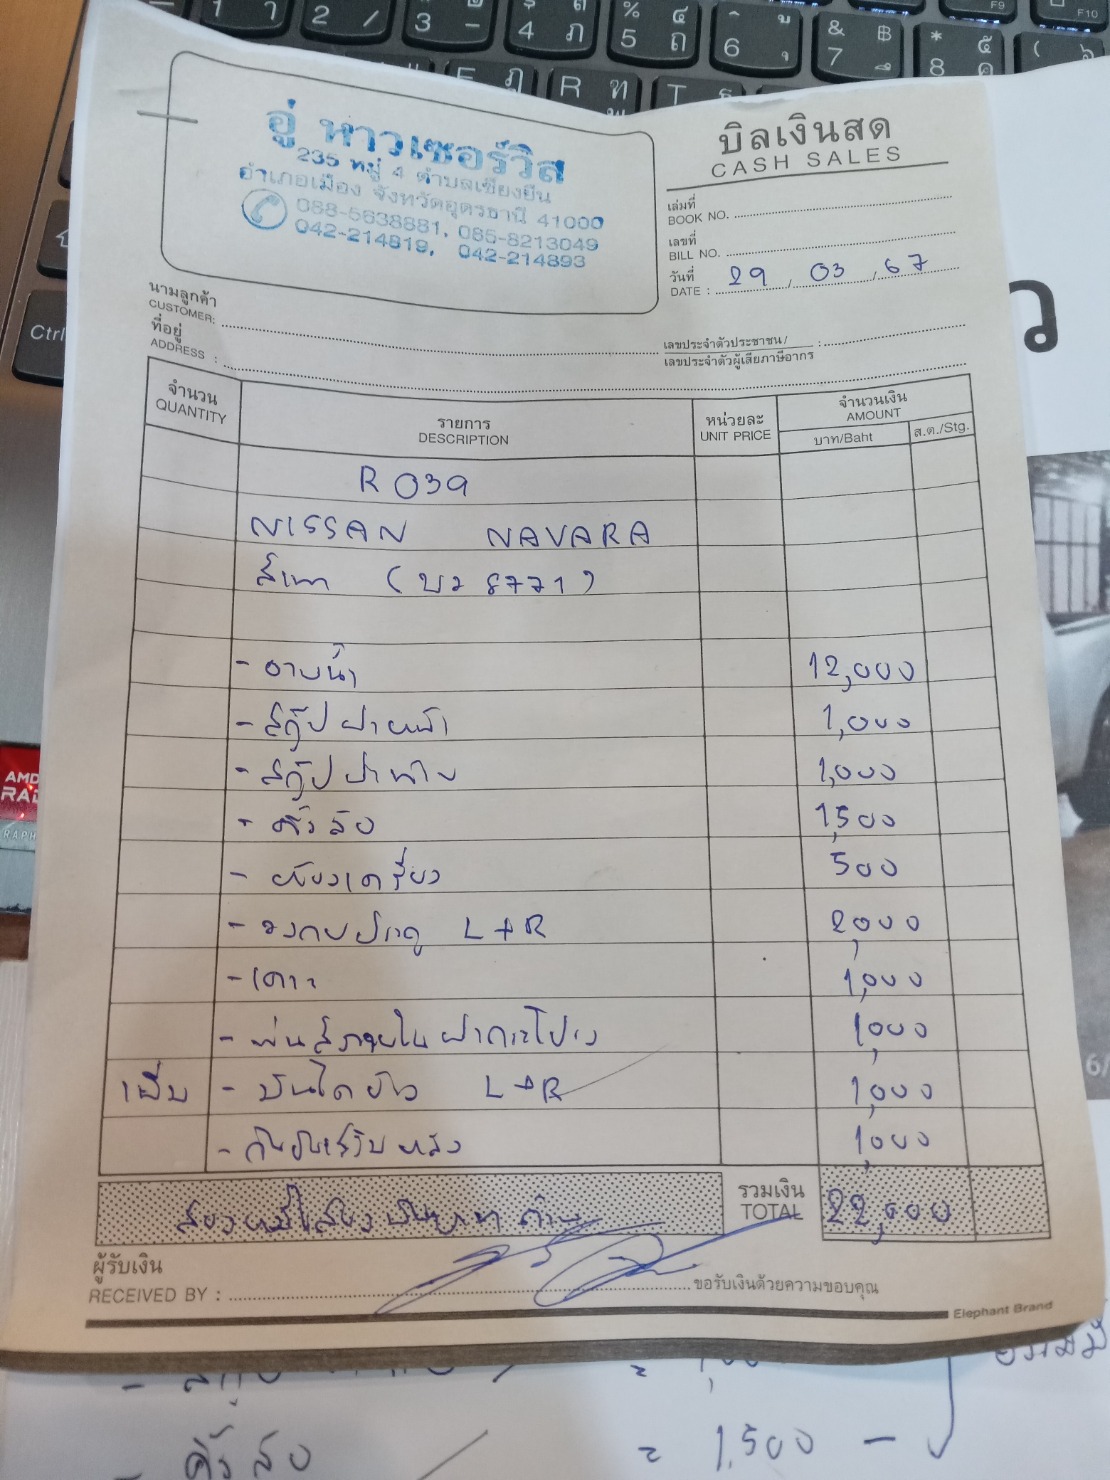 อู่ หาวเซอร์วิส
235 หมู่ 4 ตำบลเชียงยืน
อำเภอเมือง จังหวัดอุดรธานี 41000
088-5638881, 085-8213049
042-214819, 042-214893
บิลเงินสด
CASH SALES
เล่มที่
BOOK NO.
เลขที่
BILL NO.
วันที่
DATE : 29 / 03 / 67
นามลูกค้า
CUSTOMER:
ที่อยู่
ADDRESS :
เลขประจำตัวประชาชน/ :
เลขประจำตัวผู้เสียภาษีอากร
จำนวน รายการ หน่วยละ จำนวนเงิน
QUANTITY DESCRIPTION UNIT PRICE AMOUNT
บาท/Baht ส.ต./Stg.
R 039
NISSAN NAVARA
สีเทา (บว 8771)
- อาบน้ำ 12,000
- สกู๊ปฝาหน้า 1,000
- สกู๊ปฝาท้าย 1,000
- คิ้วล้อ 1,500
- ห้องเครื่อง 500
- วงกบประตู L+R 2,000
- เคาะ 1,000
- พ่นสีภายในฝากระโปรง 1,000
- บันไดข้าง L+R 1,000
- กันชนหลัง 1,000
รวมเงิน
TOTAL 22,000
สองหมื่นสองพันบาทถ้วน
ผู้รับเงิน
RECEIVED BY : ขอรับเงินด้วยความขอบคุณ
Elephant Brand
คิ้วล้อ = 1,500 -